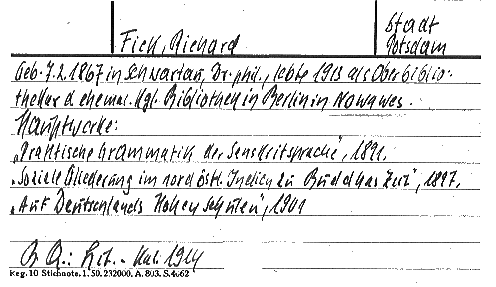 Fick, Richard
Stadt
Potsdam
Geb. 7.2.1867 in Schwartau, Dr. phil., lebte 1913 als Oberbiblio-
thekar d. ehemal. Kgl. Bibliothek in Berlin in Nowawes.
Hauptwerke:
„Praktische Grammatik der Sanskritsprache", 1891.
„Soziale Gliederung im nordöstl. Indien zu Buddhas Zeit", 1897.
„Auf Deutschlands Hohen Schulen", 1901
B. Q.: Lit.-Kal. 1914
Reg. 10 Stichnote. 1. 50. 232000. A. 803. S. 4662